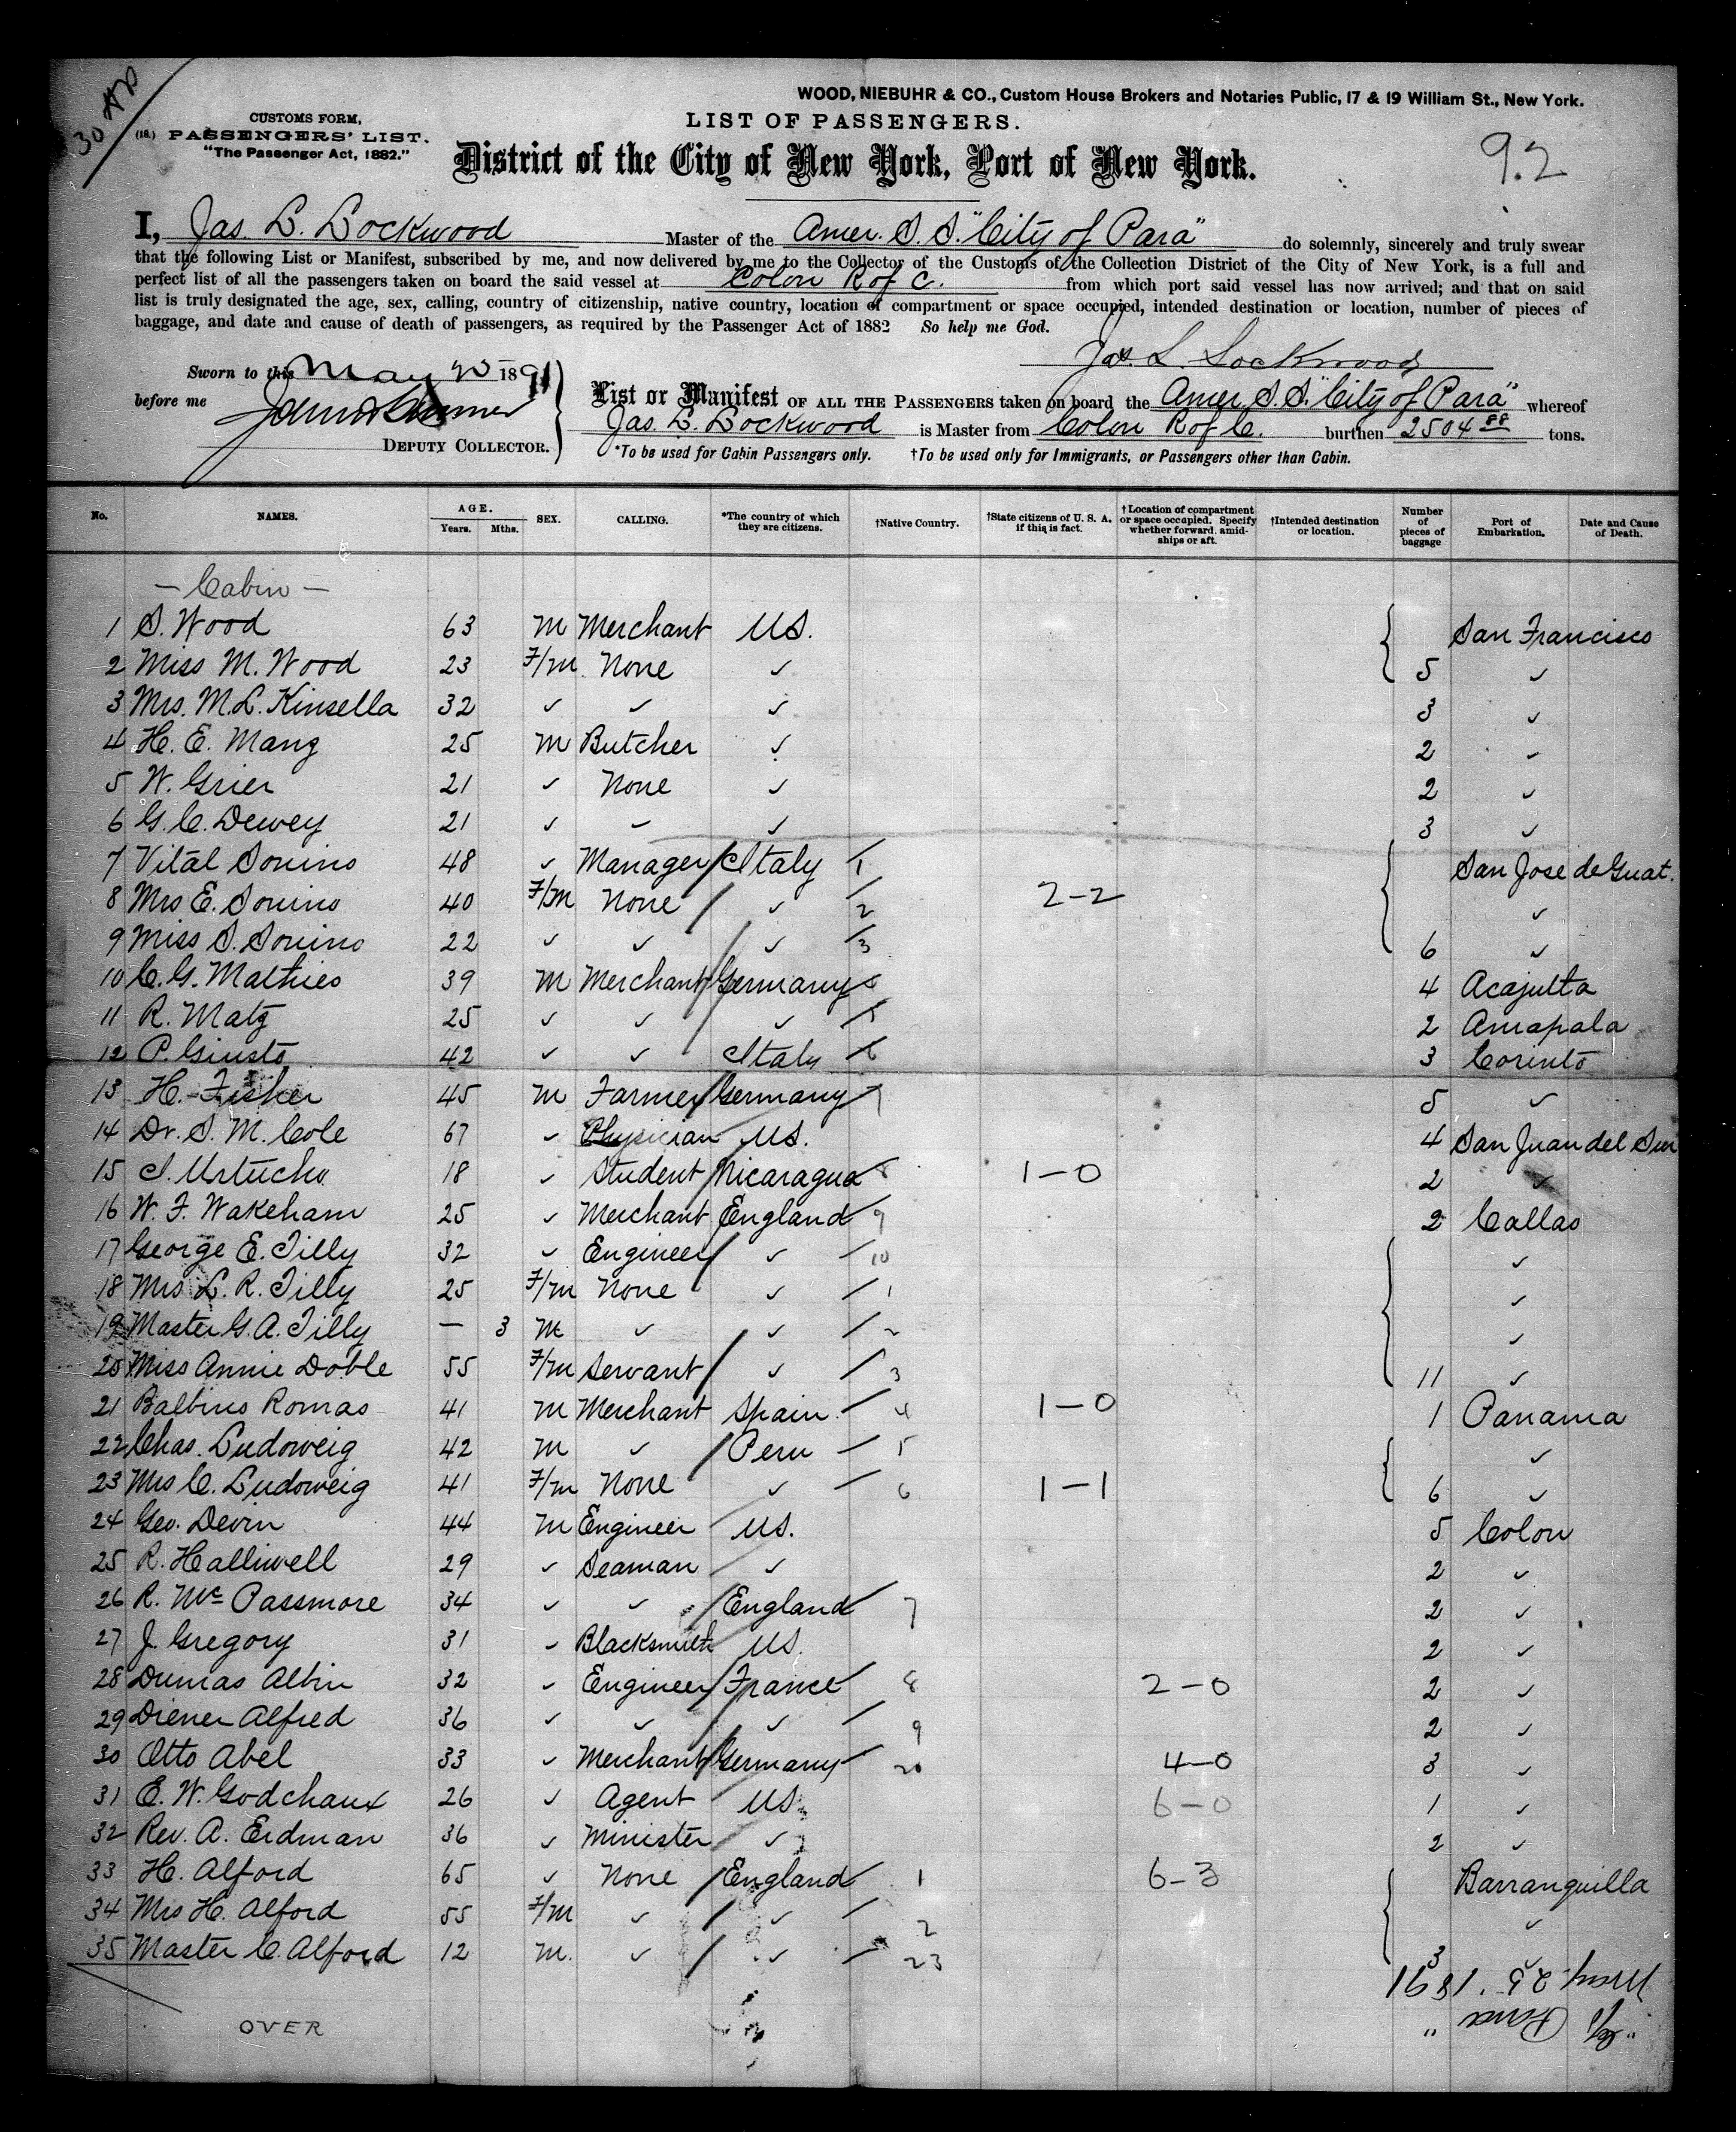 30 
WOOD, NIEBUHR & CO., Custom House Brokers and Notaries Public, 17 & 19 William St., New York.
CUSTOMS FORM,
(18.) PASSENGERS' LIST.
"The Passenger Act, 1882."
LIST OF PASSENGERS.
District of the City of New York, Port of New York.
92
I, Jas. L. Lockwood Master of the Amer. S. S. "City of Para" do solemnly, sincerely and truly swear
that the following List or Manifest, subscribed by me, and now delivered by me to the Collector of the Customs of the Collection District of the City of New York, is a full and
perfect list of all the passengers taken on board the said vessel at Colon R of C. from which port said vessel has now arrived; and that on said
list is truly designated the age, sex, calling, country of citizenship, native country, location of compartment or space occupied, intended destination or location, number of pieces of
baggage, and date and cause of death of passengers, as required by the Passenger Act of 1882 So help me God.
Jas L. Lockwood
Sworn to this May 1891
before me
DEPUTY COLLECTOR.
List or Manifest OF ALL THE PASSENGERS taken on board the Amer. S. S. "City of Para" whereof
Jas. L. Lockwood is Master from Colon R of C. burthen 2504 88 tons.
*To be used for Cabin Passengers only. †To be used only for Immigrants, or Passengers other than Cabin.
No. NAMES. AGE. Years. Mths. SEX. CALLING. *The country of which they are citizens. †Native Country. †State citizens of U. S. A. if this is fact. †Location of compartment or space occupied. Specify whether forward, amidships or aft. †Intended destination or location. Number of pieces of baggage Port of Embarkation. Date and Cause of Death.
- Cabin -
1 S. Wood 63 M Merchant US. San Francisco
2 Miss M. Wood 23 F/m None ✓ 5 ✓
3 Mrs. M.L. Kinsella 32 ✓ ✓ ✓ 3 ✓
4 H. E. Mang 25 M Butcher ✓ 2 ✓
5 W. Grier 21 ✓ None ✓ 2 ✓
6 G. C. Dewey 21 ✓ ✓ ✓ 3 ✓
7 Vital Sonino 48 ✓ Manager Italy 1 San Jose de Guat.
8 Mrs E. Sonino 40 F/m None ✓ 2 2-2 ✓
9 Miss S. Sonino 22 ✓ ✓ ✓ 3 6 ✓
10 C. G. Mathies 39 M Merchant Germany 4 Acajutla
11 R. Matz 25 ✓ ✓ ✓ 5 2 Amapala
12 P. Giusto 42 ✓ ✓ Italy 6 3 Corinto
13 H. Fisher 45 M Farmer Germany 7 5 ✓
14 Dr. S. M. Cole 67 ✓ Physician US. 4 San Juan del Sur
15 J. Urtucho 18 ✓ Student Nicaragua 8 1-0 2 ✓
16 W. F. Wakeham 25 ✓ Merchant England 9 2 Callao
17 George E. Tilly 32 ✓ Engineer ✓ 10 ✓
18 Mrs L. R. Tilly 25 F/m None ✓ 1 ✓
19 Master G. A. Tilly — 3 M ✓ ✓ 2 ✓
20 Miss Annie Doble 55 F/m Servant ✓ 3 11 ✓
21 Balbino Romas 41 M Merchant Spain 4 1-0 1 Panama
22 Chas. Ludoweig 42 M ✓ Peru 5 ✓
23 Mrs C. Ludoweig 41 F/m None ✓ 6 1-1 6 ✓
24 Geo. Devin 44 M Engineer US. 5 Colon
25 R. Halliwell 29 ✓ Seaman ✓ 2 ✓
26 R. Mc Passmore 34 ✓ ✓ England 7 2 ✓
27 J. Gregory 31 ✓ Blacksmith US. 2 ✓
28 Dumas Albin 32 ✓ Engineer France 8 2-0 2 ✓
29 Diener Alfred 36 ✓ ✓ ✓ 9 2 ✓
30 Otto Abel 33 ✓ Merchant Germany 20 4-0 3 ✓
31 E. W. Godchaux 26 ✓ Agent US. 6-0 1 ✓
32 Rev. A. Erdman 36 ✓ Minister ✓ 2 ✓
33 H. Alford 65 ✓ None England 1 6-3 Barranquilla
34 Mrs H. Alford 55 F/m ✓ ✓ 2 ✓
35 Master C. Alford 12 M. ✓ ✓ 23 3 ✓
May 25" 1891
"City Para"
OVER